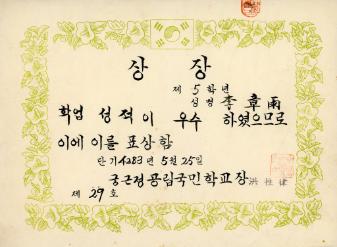 상장
제 5 학년
성명 李章雨
학업 성적이 우수 하였으므로
이에 이를 표상함
단기 4283 년 5월 25일
궁근정공립국민학교장 洪性律
제 29 호